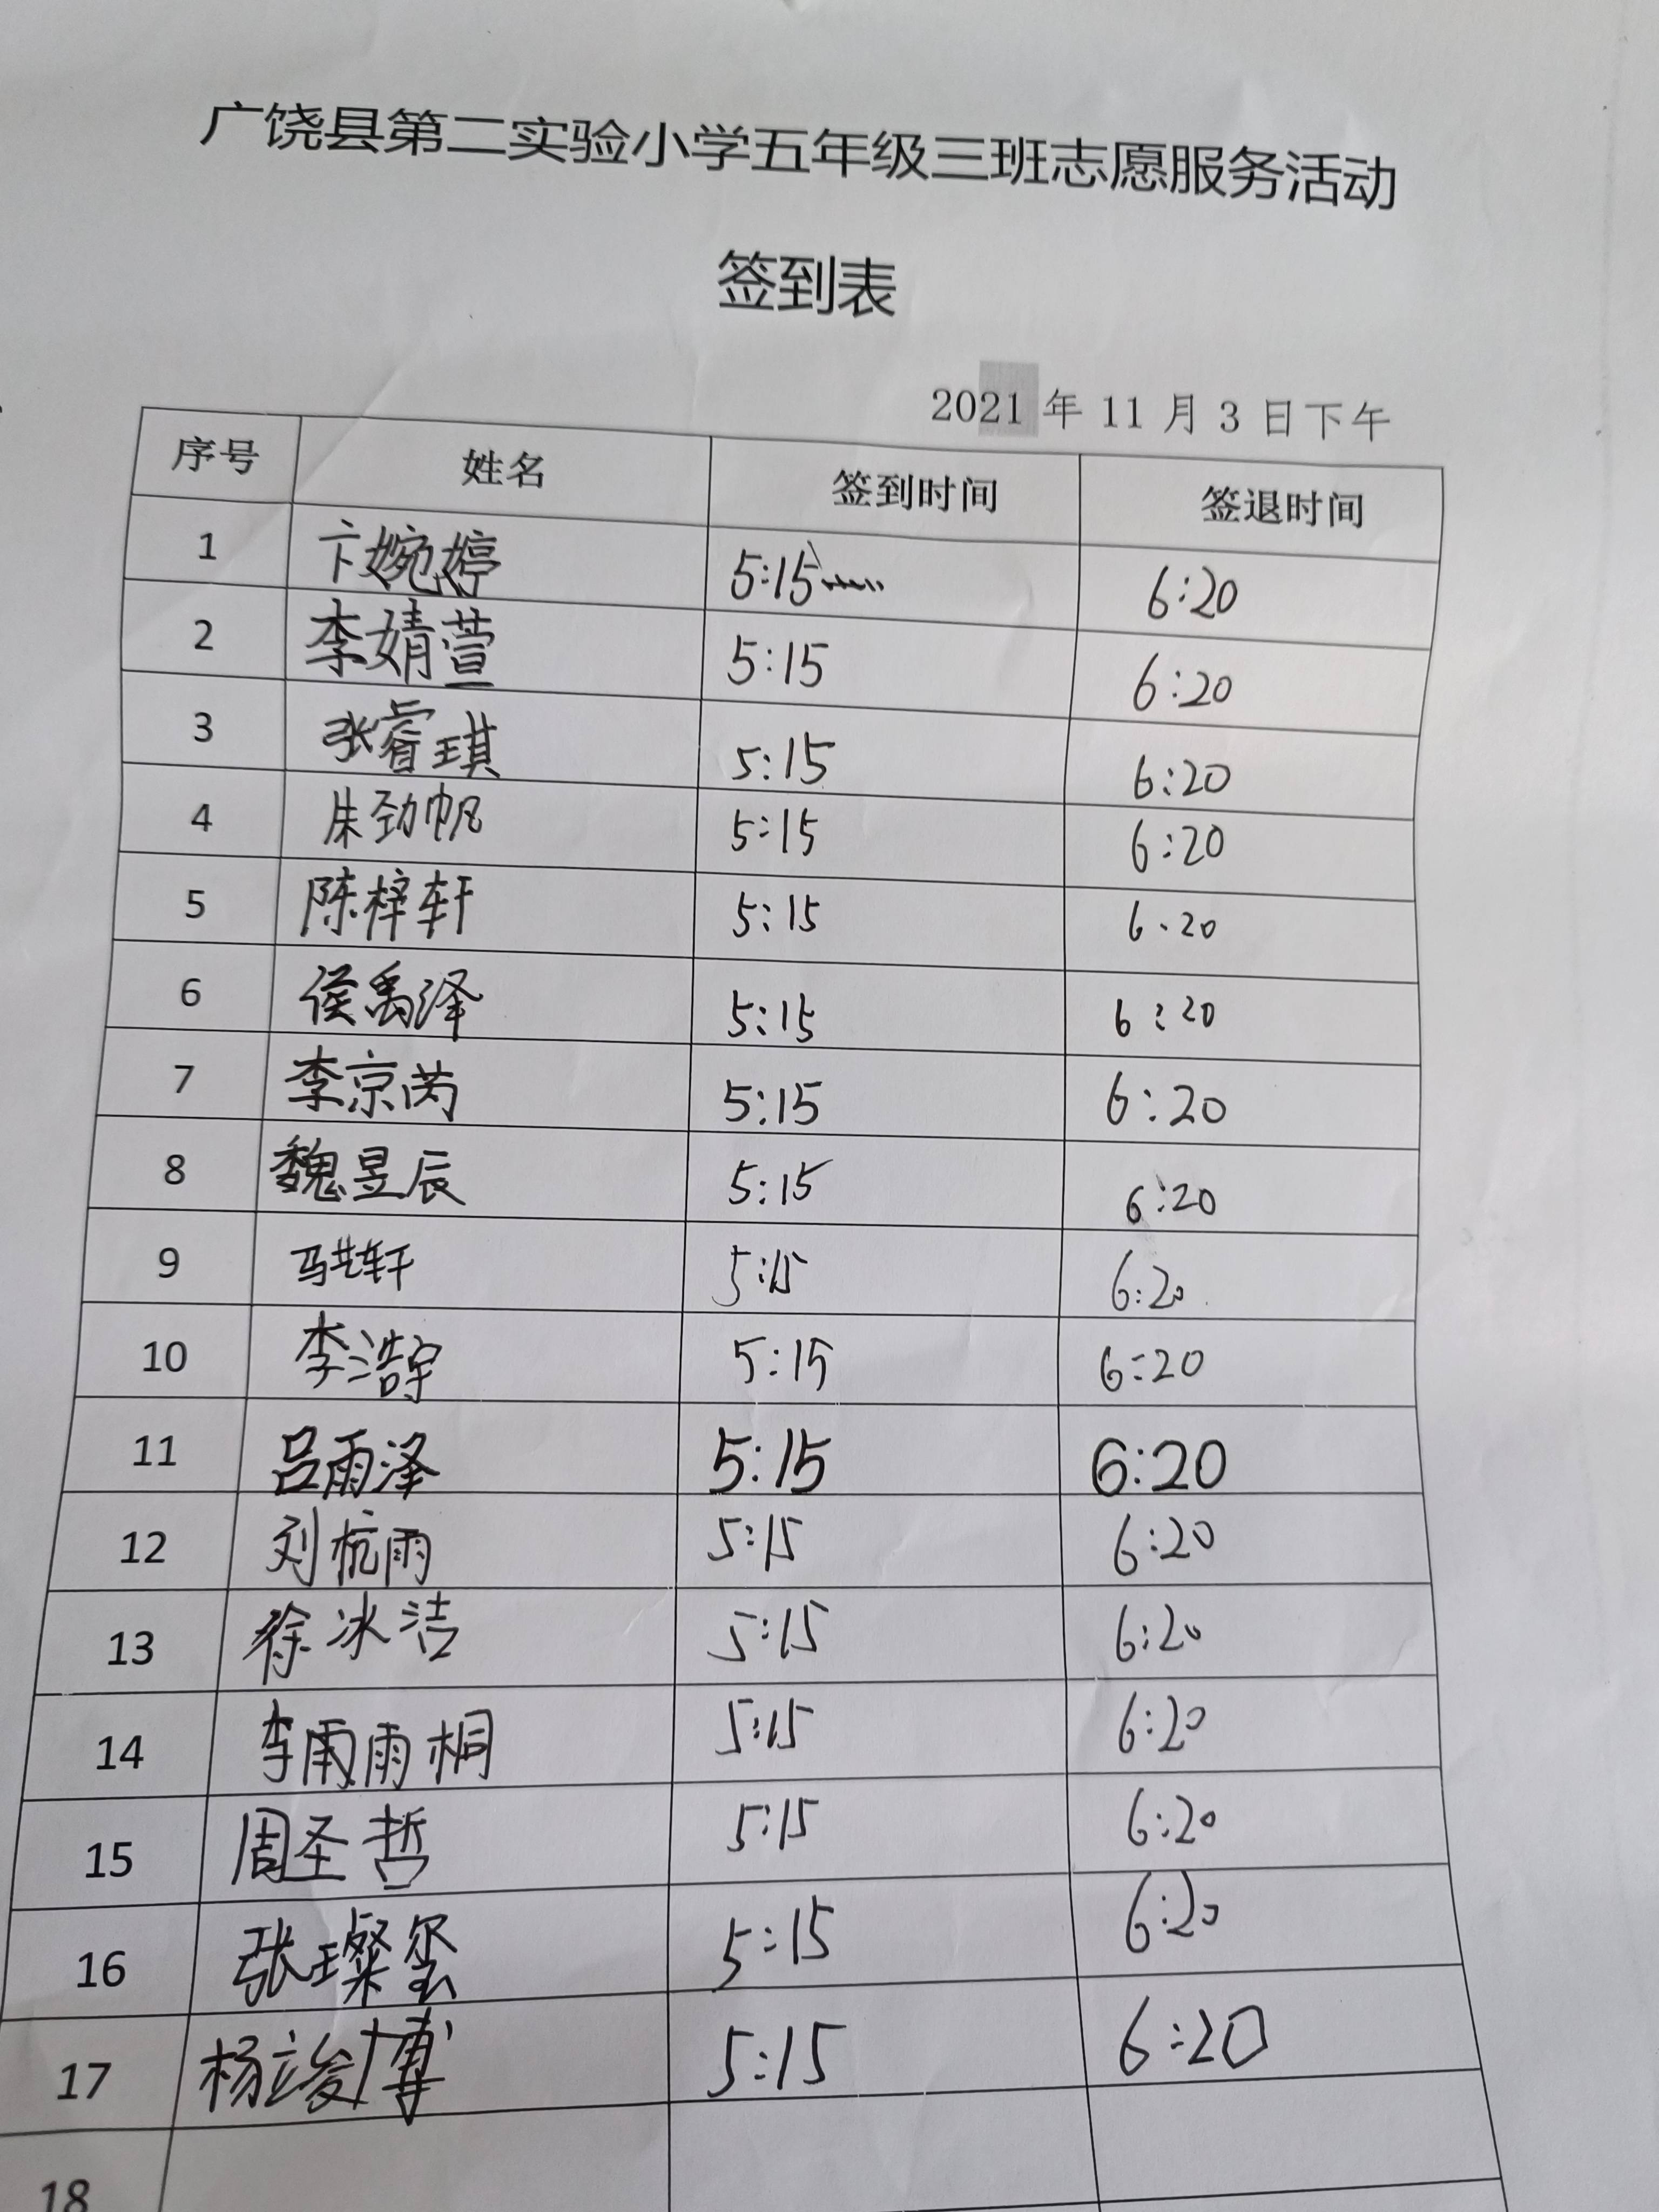 广饶县第二实验小学五年级三班志愿服务活动
签到表
2021 年 11 月 3 日下午
序号 姓名 签到时间 签退时间
1 卞婉婷 5:15 6:20
2 李婧萱 5:15 6:20
3 张睿琪 5:15 6:20
4 朱劲帆 5:15 6:20
5 陈梓轩 5:15 6:20
6 侯禹泽 5:15 6:20
7 李京芮 5:15 6:20
8 魏昱辰 5:15 6:20
9 马 轩 5:15 6:20
10 李浩宇 5:15 6:20
11 吕雨泽 5:15 6:20
12 刘杭雨 5:15 6:20
13 徐冰洁 5:15 6:20
14 李雨雨桐 5:15 6:20
15 周圣哲 5:15 6:20
16 张璨玺 5:15 6:20
17 杨竣博 5:15 6:20
18